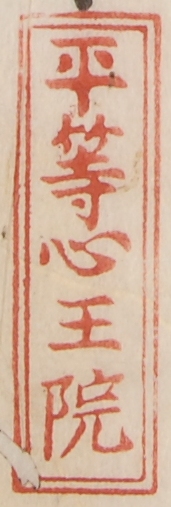 平等心王院